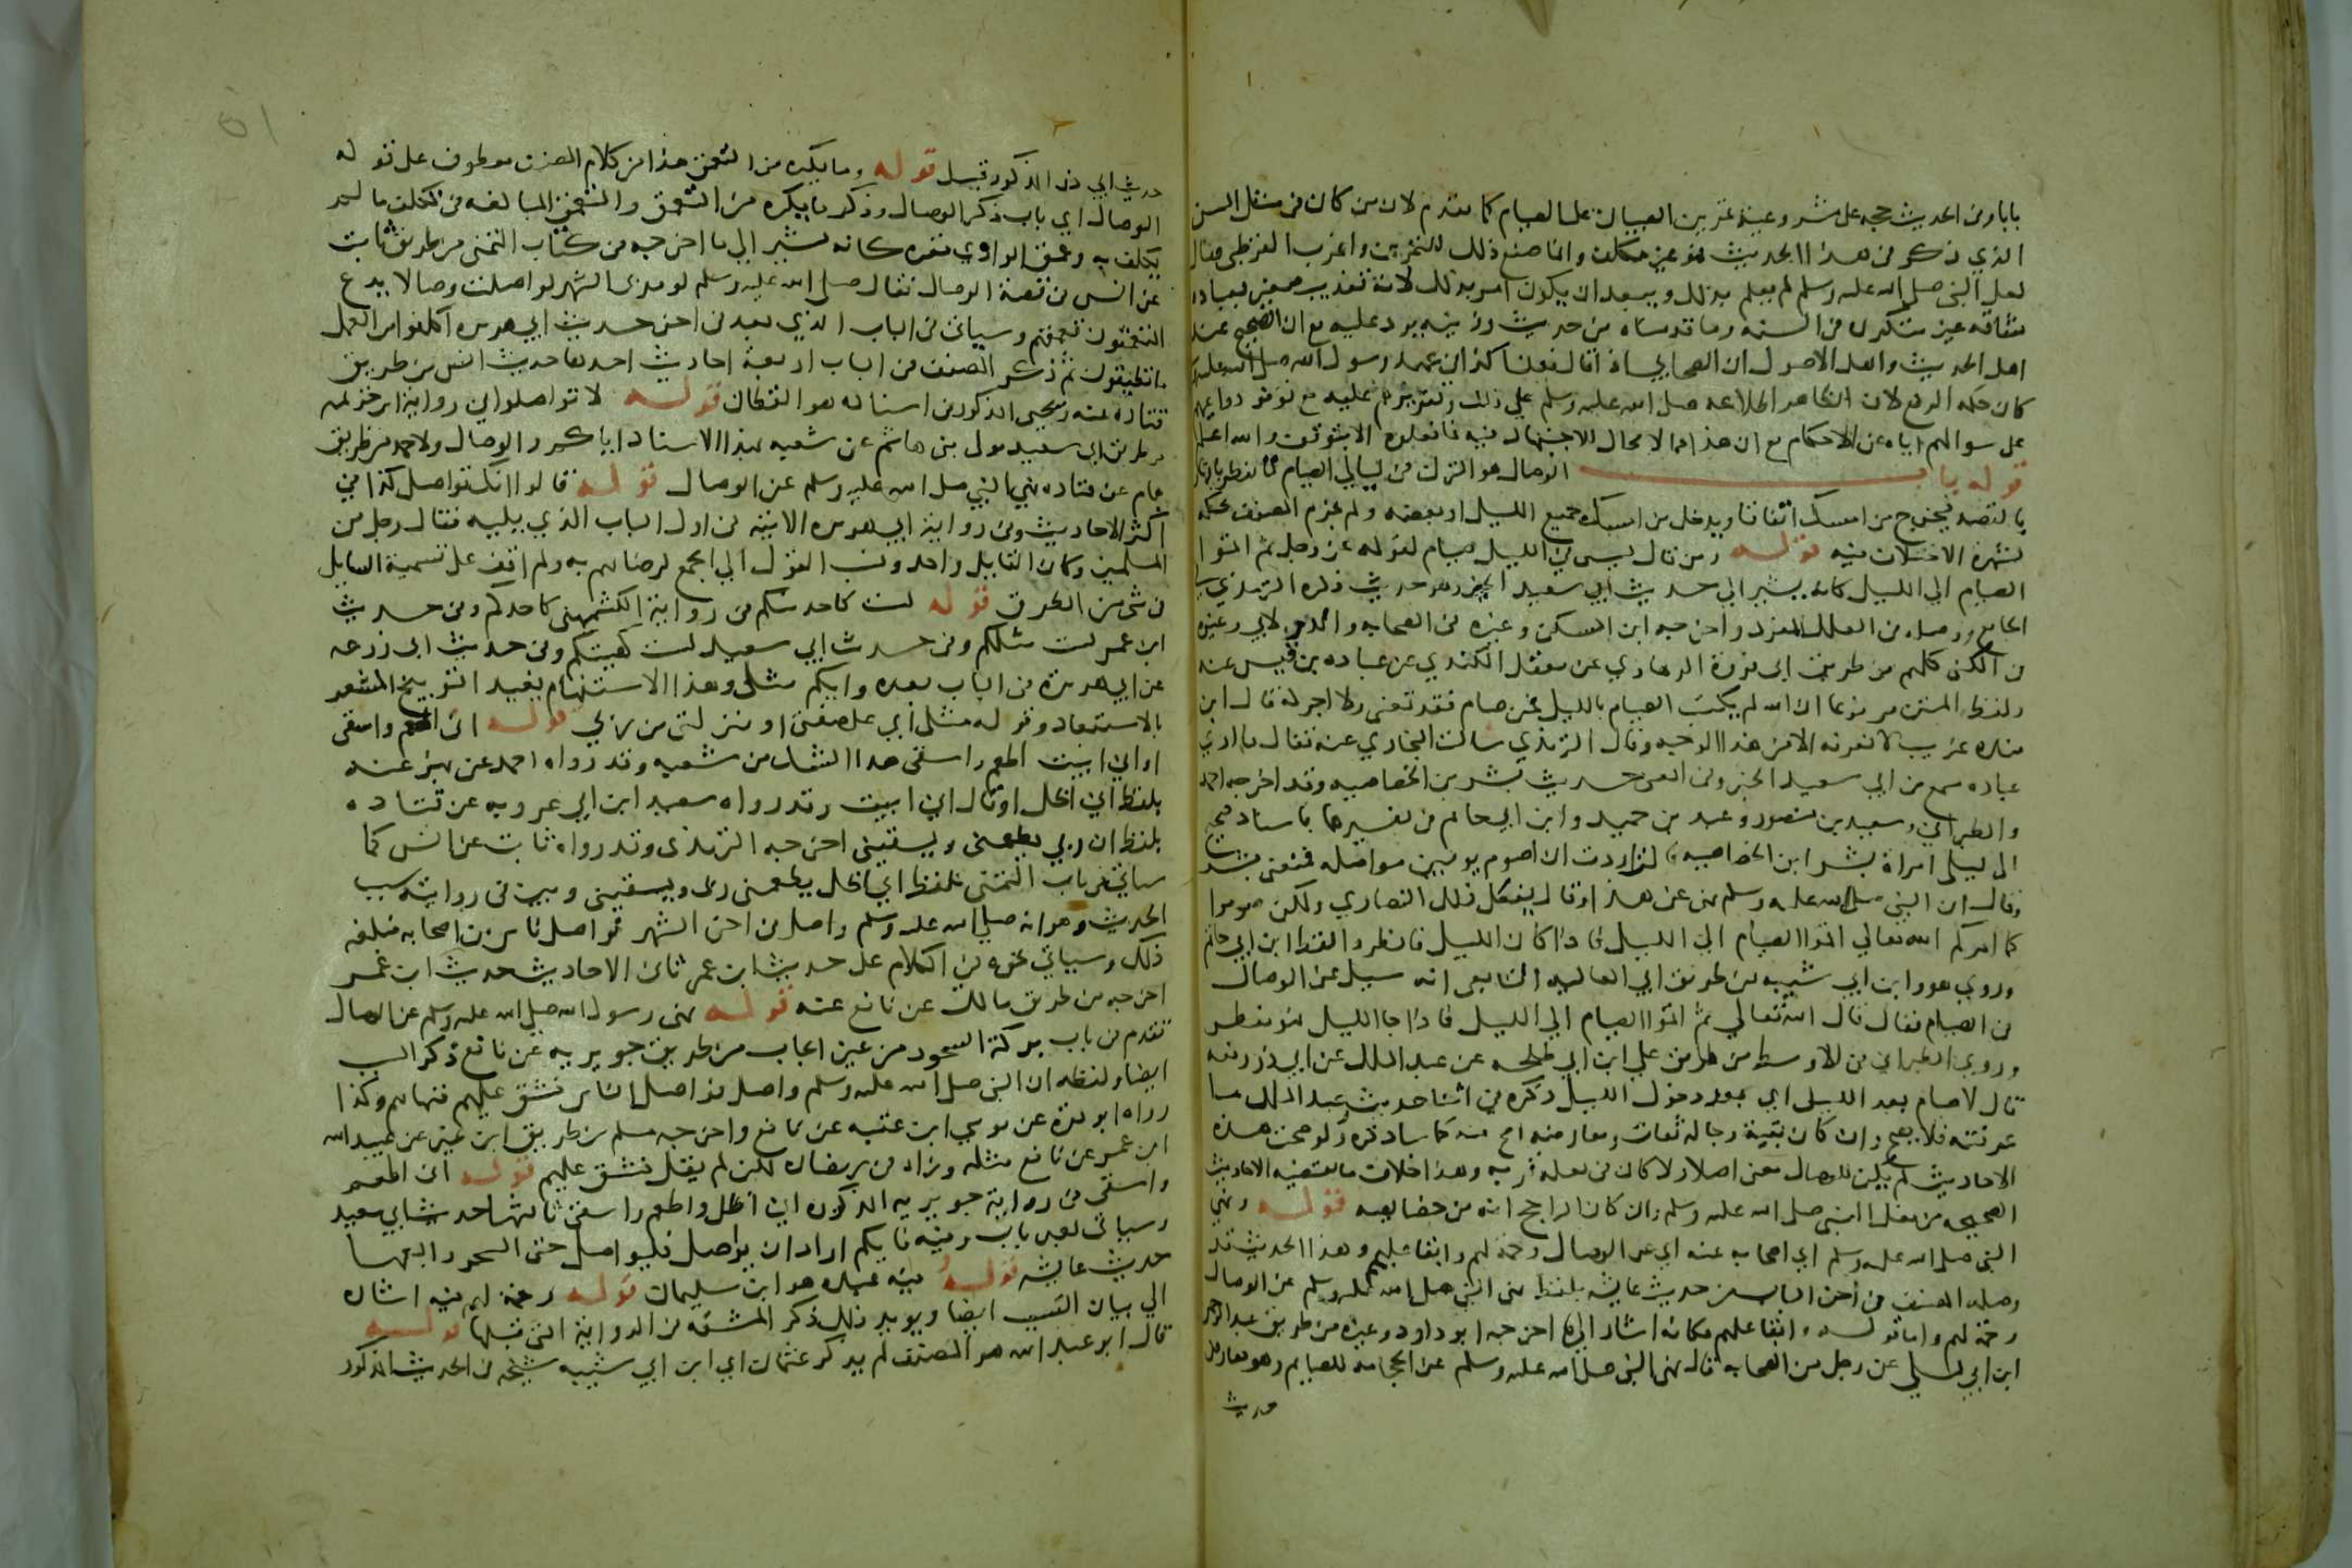 بابا وفي الحديث حجه على مشروعية تمرين الصبيان على الصيام كما تقدم لان من كان في مثل السن
الذي ذكر في هذا الحديث فهو غير مكلف وانما صنع ذلك للتمرين واغرب القرطبي فقال
لعل النبي صلى الله عليه وسلم لم يعلم بذلك ويبعد ان يكون امر بذلك لانه تعذيب صغير بعباده
شاقه غير متكرره في السنه وما قدمناه من حديث رزينه يرد عليه مع ان الصحيح عند
اهل الحديث واهل الاصول ان الصحابي اذا قال فعلنا كذا في عهد رسول الله صلى الله عليه
كان حكمه الرفع لان الظاهر اطلاعه صلى الله عليه وسلم على ذلك وتقريرهم عليه مع توفر دواعيهم
على سوالهم اياه عن الاحكام مع ان هذا مما لا مجال للاجتهاد فيه فما فعلوه الا بتوقيف والله اعلم
قوله باب الوصال هو الترك في ليالي الصيام لما يفطر بالنهار
بالقصد فيخرج من امسك اتفاقا ويدخل من امسك جميع الليل او بعضه ولم يجزم المصنف بحكمه
لشهرة الاختلاف فيه قوله ومن قال ليس في الليل صيام لقوله عز وجل ثم اتموا
الصيام الى الليل كانه يشير الى حديث ابي سعيد الخير وهو حديث ذكره الترمذي في
الجامع ووصله في العلل المفرد واخرجه ابن السكن وغيره في الصحابه والدولابي وغيره
في الكنى كلهم من طريق ابي فروة الرهاوي عن معقل الكندي عن عباده بن نسي عنه
ولفظ المتن مرفوعا ان الله لم يكتب الصيام بالليل فمن صام فقد تعنى ولا اجر له قال ابن
منده غريب لا نعرفه الا من هذا الوجه وقال الترمذي سالت البخاري عنه فقال ما اري
عباده سمع من ابي سعيد الخير وفي المعنى حديث بشير بن الخصاصيه وقد اخرجه احمد
والطبراني وسعيد بن منصور وعبد بن حميد وابن ابي حاتم في تفسيرهما باسناد صحيح
الى ليلى امراة بشير ابن الخصاصيه قالت اردت ان اصوم يومين مواصله فمنعني بشير
وقال ان النبي صلى الله عليه وسلم نهى عن هذا وقال يفعل ذلك النصارى ولكن صوموا
كما امركم الله تعالى اتموا الصيام الى الليل فاذا كان الليل فافطروا لفظ ابن ابي حاتم
وروي هو وابن ابي شيبه من طريق ابي العاليه التابعي انه سيل عن الوصال
في الصيام فقال قال الله تعالى ثم اتموا الصيام الى الليل فاذا جا الليل فهو مفطر
وروى الطبراني في الاوسط من طريق علي ابن ابي طلحه عن عبد الملك عن ابي ذر رفعه
قال لا صيام بعد الليل اي بعد دخول الليل ذكره في اثنا حديث وعبد الملك ما
عرفته فلا يصح وان كان بقية رجاله ثقات ومعارضه اصح منه كما ساذكره ولو صحت هذه
الاحاديث لم يكن للوصال معنى اصلا ولا كان في فعله قربه وهذا خلاف ما تقتضيه الاحاديث
الصحيحه من فعل النبي صلى الله عليه وسلم وان كان الراجح انه من خصايصه قوله ونهى
النبي صلى الله عليه وسلم اي اصحابه عنه اي عن الوصال رحمة لهم وابقا عليهم وهذا الحديث قد
وصله المصنف في اخر الباب من حديث عايشه بلفظ نهى النبي صلى الله عليه وسلم عن الوصال
رحمة لهم واما قوله وابقا عليهم فكانه اشار الى ما اخرجه ابو داود وغيره من طريق عبد الرحمن
ابن ابي ليلى عن رجل من الصحابه قال نهى النبي صلى الله عليه وسلم عن الحجامه للصايم وهو يعارض
حديث
حديث ابي ذر المذكور قبل قوله وما يكره من التعمق هذا من كلام المصنف معطوف على قوله
الوصال اي باب ذكر الوصال وذكر ما يكره من التعمق والتعمق المبالغه في تكلف ما لم
يكلف به وعمق الوادي قعره كانه يشير الى ما اخرجه في كتاب التمني من طريق ثابت
عن انس في قصة الوصال فقال صلى الله عليه وسلم لو مد بي الشهر لواصلت وصالا يدع
المتعمقون تعمقهم وسياتي في الباب الذي بعده في اخر حديث ابي هريره اكلفوا من العمل
ما تطيقون ثم ذكر المصنف في الباب اربعة احاديث احدها حديث انس من طريق
قتاده عنه ويحيى المذكور في اسناده هو القطان قوله لا تواصلوا في رواية ابن خزيمه
من طريق ابي سعيد مولى بني هاشم عن شعبه بهذا الاسناد اياكم والوصال ولاحمد من طريق
همام عن قتاده نهى النبي صلى الله عليه وسلم عن الوصال قوله قالوا انك تواصل كذا في
اكثر الاحاديث وفي رواية ابي هريره الاتيه في اول الباب الذي يليه فقال رجل من
المسلمين وكان القايل واحد ونسب القول الى الجمع لرضاهم به ولم اقف على تسمية القايل
في شي من الطرق قوله لست كاحد منكم في رواية الكشميهني كاحدكم وفي حديث
ابن عمر لست مثلكم وفي حديث ابي سعيد لست كهيئتكم وفي حديث ابي زرعه
عن ابي هريره في الباب بعده وايكم مثلي وهذا الاستفهام يفيد التوبيخ المشعر
بالاستبعاد وقوله مثلي اي على صفتي او منزلتي من ربي قوله اني اطعم واسقى
او اني ابيت اطعم واسقى هذا الشك من شعبه وقد رواه احمد عن بهز عنه
بلفظ اني اظل او قال اني ابيت وقد رواه سعيد ابن ابي عروبه عن قتاده
بلفظ ان ربي يطعمني ويسقيني اخرجه الترمذي وقد رواه ثابت عن انس كما
سياتي في باب التمني بلفظ اني اظل يطعمني ربي ويسقيني وبين في روايته سبب
الحديث وهو انه صلى الله عليه وسلم واصل في اخر الشهر فواصل ناس من اصحابه فبلغه
ذلك وسياتي نحوه في الكلام على حديث ابن عمر ثاني الاحاديث حديث ابن عمر
اخرجه من طريق مالك عن نافع عنه قوله نهى رسول الله صلى الله عليه وسلم عن الوصال
تقدم في باب بركة السحور من غير ايجاب من طريق جويريه عن نافع ذكر السبب
ايضا ولفظه ان النبي صلى الله عليه وسلم واصل فواصل الناس فشق عليهم فنهاهم وكذا
رواه ابو قرة عن موسى ابن عقبه عن نافع واخرجه مسلم من طريق ابن نمير عن عبيد الله
ابن عمر عن نافع مثله وزاد في رمضان لكن لم يقل فشق عليهم قوله اني اطعم
واسقى في رواية جويريه المذكوره اني اظل واطعم واسقى ثالثها حديث ابي سعيد
وسياتي بعد باب وفيه فايكم اراد ان يواصل فليواصل حتى السحر رابعها
حديث عايشه قوله فيه عبده هو ابن سليمان قوله رحمة لهم فيه اشاره
الى بيان السبب ايضا ويويد ذلك ذكر المشقه في الرواية التي قبلها قوله
قال ابو عبد الله هو المصنف لم يذكر عثمان اي ابن ابي شيبه شيخه في الحديث المذكور